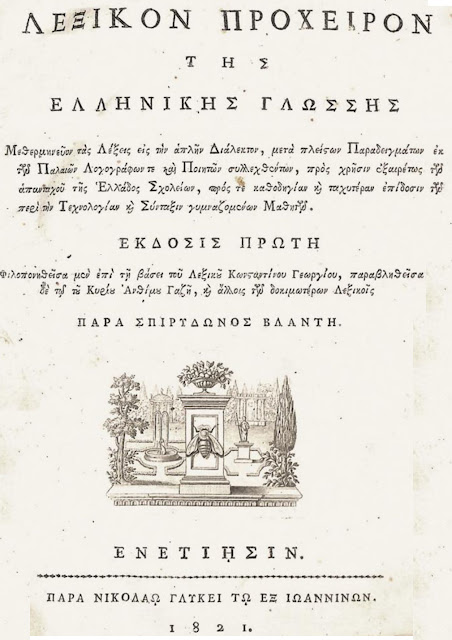 ΛΕΞΙΚΟΝ ΠΡΟΧΕΙΡΟΝ
ΤΗΣ
ΕΛΛΗΝΙΚΗΣ ΓΛΩΣΣΗΣ
Μεθερμηνεῦον τὰς Λέξεις εἰς τὴν ἁπλῆν Διάλεκτον, μετὰ πλείςων Παραδειγμάτων ἐκ
τῶν Παλαιῶν Λογογράφων τε καὶ Ποιητῶν συλλεχθέντων, πρὸς χρῆσιν ἐξαιρέτως τῶν
ἁπανταχοῦ τῆς Ἑλλάδος Σχολείων, πρός τε καθοδηγίαν καὶ ταχυτέραν ἐπίδοσιν τῶν
περὶ τὴν Τεχνολογίαν καὶ Σύνταξιν γυμναζομένων Μαθητῶν.
ΕΚΔΟΣΙΣ ΠΡΩΤΗ
Φιλοπονηθεῖσα μὲν ἐπὶ τῇ βάσει τοῦ Λεξικοῦ Κωνσταντίνου Γεωργίου, παραβληθεῖσα
δὲ τῷ τοῦ Κυρίου Ἀνθίμου Γαζῆ, καὶ ἄλλοις τῶν δοκιμωτέρων Λεξικοῖς
ΠΑΡΑ ΣΠΙΡΥΔΩΝΟΣ ΒΛΑΝΤΗ.
ΕΝΕΤΙΗΣΙΝ.
ΠΑΡΑ ΝΙΚΟΛΑΩ ΓΛΥΚΕΙ ΤΩ ΕΞ ΙΩΑΝΝΙΝΩΝ.
1821.